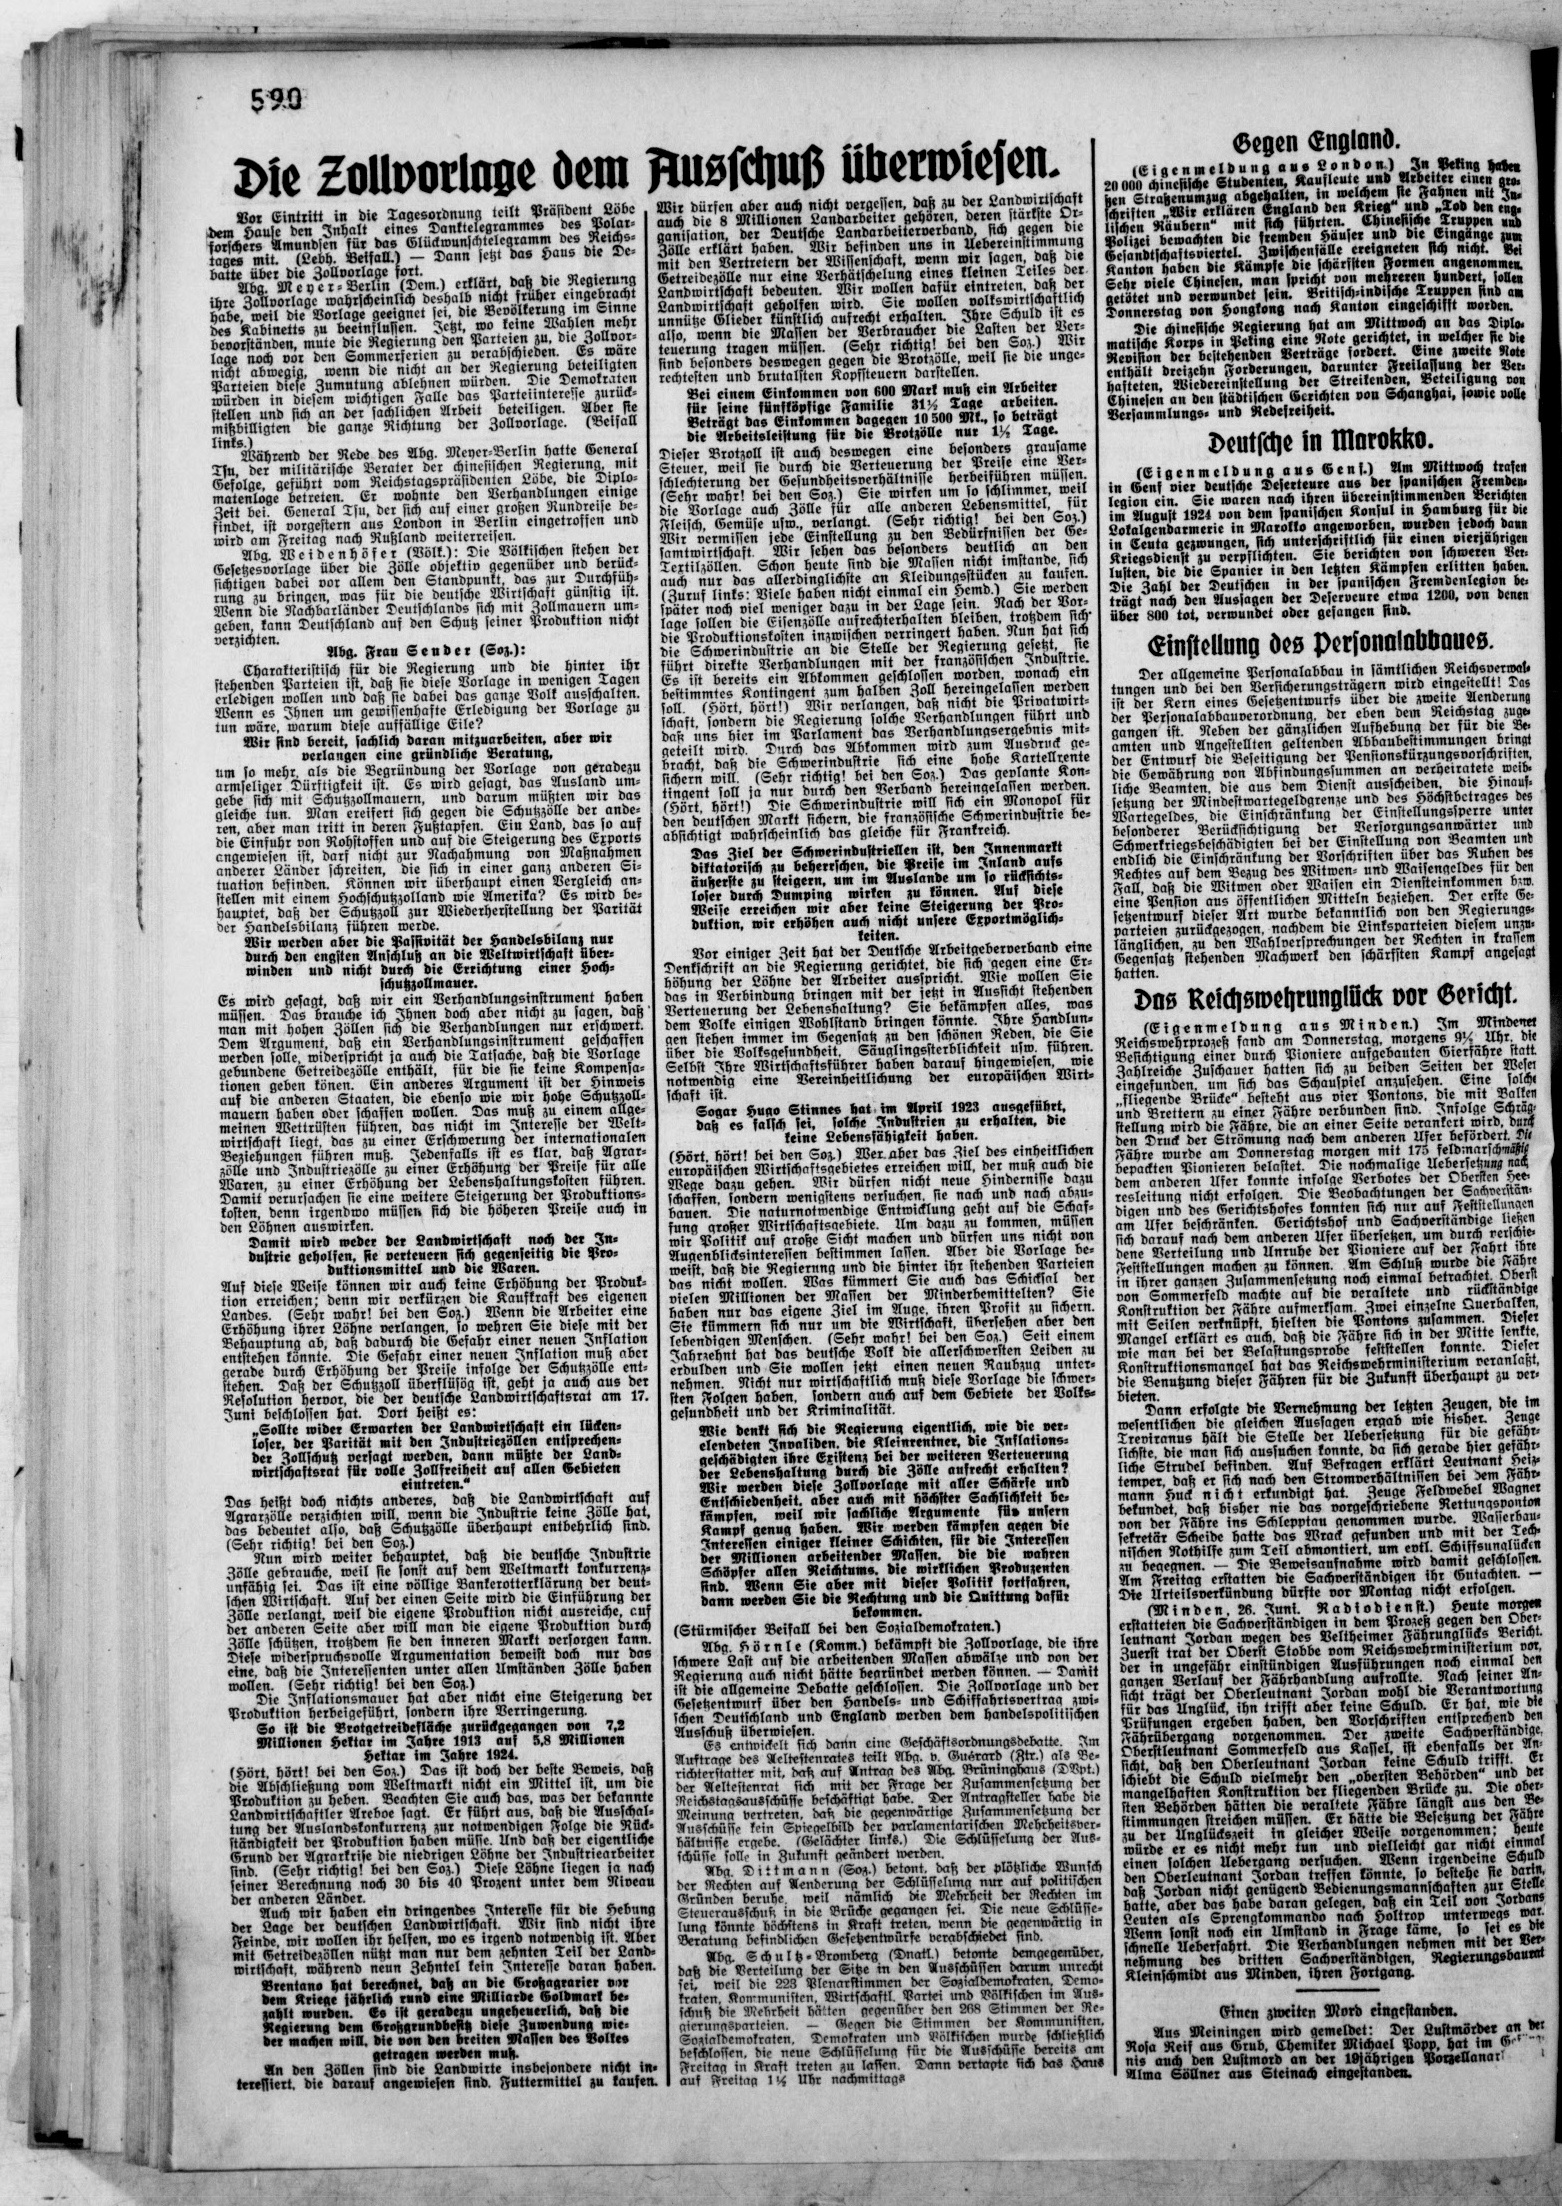 590
Die Zollvorlage dem Ausschuß überwiesen.
Vor Eintritt in die Tagesordnung teilt Präsident Löbe
dem Hause den Inhalt eines Danktelegrammes des Polar-
forschers Amundsen für das Glückwunschtelegramm des Reichs-
tages mit. (Lebh. Beifall.) — Dann setzt das Haus die De-
batte über die Zollvorlage fort.
Abg. Meyer-Berlin (Dem.) erklärt, daß die Regierung
ihre Zollvorlage wahrscheinlich deshalb nicht früher eingebracht
habe, weil die Vorlage geeignet sei, die Bevölkerung im Sinne
des Kabinetts zu beeinflussen. Jetzt, wo keine Wahlen mehr
bevorständen, mute die Regierung den Parteien zu, die Zollvor-
lage noch vor den Sommerferien zu verabschieden. Es wäre
nicht abwegig, wenn die nicht an der Regierung beteiligten
Parteien diese Zumutung ablehnen würden. Die Demokraten
würden in diesem wichtigen Falle das Parteiinteresse zurück-
stellen und sich an der sachlichen Arbeit beteiligen. Aber sie
mißbilligten die ganze Richtung der Zollvorlage. (Beifall
links.)
Während der Rede des Abg. Meyer-Berlin hatte General
Tsu, der militärische Berater der chinesischen Regierung, mit
Gefolge, geführt vom Reichstagspräsidenten Löbe, die Diplo-
matenloge betreten. Er wohnte den Verhandlungen einige
Zeit bei. General Tsu, der sich auf einer großen Rundreise be-
findet, ist vorgestern aus London in Berlin eingetroffen und
wird am Freitag nach Rußland weiterreisen.
Abg. Weidenhöfer (Völk.): Die Völkischen stehen der
Gesetzesvorlage über die Zölle objektiv gegenüber und berück-
sichtigen dabei vor allem den Standpunkt, das zur Durchfüh-
rung zu bringen, was für die deutsche Wirtschaft günstig ist.
Wenn die Nachbarländer Deutschlands sich mit Zollmauern um-
geben, kann Deutschland auf den Schutz seiner Produktion nicht
verzichten.
Abg. Frau Sender (Soz.):
Charakteristisch für die Regierung und die hinter ihr
stehenden Parteien ist, daß sie diese Vorlage in wenigen Tagen
erledigen wollen und daß sie dabei das ganze Volk ausschalten.
Wenn es Ihnen um gewissenhafte Erledigung der Vorlage zu
tun wäre, warum diese auffällige Eile?
Wir sind bereit, sachlich daran mitzuarbeiten, aber wir
verlangen eine gründliche Beratung,
um so mehr, als die Begründung der Vorlage von geradezu
armseliger Dürftigkeit ist. Es wird gesagt, das Ausland um-
gebe sich mit Schutzzollmauern, und darum müßten wir das
gleiche tun. Man ereifert sich gegen die Schutzzölle der ande-
ren, aber man tritt in deren Fußtapfen. Ein Land, das so auf
die Einfuhr von Rohstoffen und auf die Steigerung des Exports
angewiesen ist, darf nicht zur Nachahmung von Maßnahmen
anderer Länder schreiten, die sich in einer ganz anderen Si-
tuation befinden. Können wir überhaupt einen Vergleich an-
stellen mit einem Hochschutzzolland wie Amerika? Es wird be-
hauptet, daß der Schutzzoll zur Wiederherstellung der Parität
der Handelsbilanz führen werde.
Wir werden aber die Passivität der Handelsbilanz nur
durch den engsten Anschluß an die Weltwirtschaft über-
winden und nicht durch die Errichtung einer Hoch-
schutzzollmauer.
Es wird gesagt, daß wir ein Verhandlungsinstrument haben
müssen. Das brauche ich Ihnen doch aber nicht zu sagen, daß
man mit hohen Zöllen sich die Verhandlungen nur erschwert.
Dem Argument, daß ein Verhandlungsinstrument geschaffen
werden solle, widerspricht ja auch die Tatsache, daß die Vorlage
gebundene Getreidezölle enthält, für die sie keine Kompensa-
tionen geben könen. Ein anderes Argument ist der Hinweis
auf die anderen Staaten, die ebenso wie wir hohe Schutzzoll-
mauern haben oder schaffen wollen. Das muß zu einem allge-
meinen Wettrüsten führen, das nicht im Interesse der Welt-
wirtschaft liegt, das zu einer Erschwerung der internationalen
Beziehungen führen muß. Jedenfalls ist es klar, daß Agrar-
zölle und Industriezölle zu einer Erhöhung der Preise für alle
Waren, zu einer Erhöhung der Lebenshaltungskosten führen.
Damit verursachen sie eine weitere Steigerung der Produktions-
kosten, denn irgendwo müssen sich die höheren Preise auch in
den Löhnen auswirken.
Damit wird weder der Landwirtschaft noch der In-
dustrie geholfen, sie verteuern sich gegenseitig die Pro-
duktionsmittel und die Waren.
Auf diese Weise können wir auch keine Erhöhung der Produk-
tion erreichen; denn wir verkürzen die Kaufkraft des eigenen
Landes. (Sehr wahr! bei den Soz.) Wenn die Arbeiter eine
Erhöhung ihrer Löhne verlangen, so wehren Sie diese mit der
Behauptung ab, daß dadurch die Gefahr einer neuen Inflation
entstehen könnte. Die Gefahr einer neuen Inflation muß aber
gerade durch Erhöhung der Preise infolge der Schutzzölle ent-
stehen. Daß der Schutzzoll überflüsög ist, geht ja auch aus der
Resolution hervor, die der deutsche Landwirtschaftsrat am 17.
Juni beschlossen hat. Dort heißt es:
„Sollte wider Erwarten der Landwirtschaft ein lücken-
loser, der Parität mit den Industriezöllen entsprechen-
der Zollschutz versagt werden, dann müßte der Land-
wirtschaftsrat für volle Zollfreiheit auf allen Gebieten
eintreten.“
Das heißt doch nichts anderes, daß die Landwirtschaft auf
Agrarzölle verzichten will, wenn die Industrie keine Zölle hat,
das bedeutet also, daß Schutzzölle überhaupt entbehrlich sind.
(Sehr richtig! bei den Soz.)
Nun wird weiter behauptet, daß die deutsche Industrie
Zölle gebrauche, weil sie sonst auf dem Weltmarkt konkurrenz-
unfähig sei. Das ist eine völlige Bankerotterklärung der deut-
schen Wirtschaft. Auf der einen Seite wird die Einführung der
Zölle verlangt, weil die eigene Produktion nicht ausreiche, auf
der anderen Seite aber will man die eigene Produktion durch
Zölle schützen, trotzdem sie den inneren Markt versorgen kann.
Diese widerspruchsvolle Argumentation beweist doch nur das
eine, daß die Interessenten unter allen Umständen Zölle haben
wollen. (Sehr richtig! bei den Soz.)
Die Inflationsmauer hat aber nicht eine Steigerung der
Produktion herbeigeführt, sondern ihre Verringerung.
So ist die Brotgetreidefläche zurückgegangen von 7,2
Millionen Hektar im Jahre 1913 auf 5,8 Millionen
Hektar im Jahre 1924.
(Hört, hört! bei den Soz.) Das ist doch der beste Beweis, daß
die Abschließung vom Weltmarkt nicht ein Mittel ist, um die
Produktion zu heben. Beachten Sie auch das, was der bekannte
Landwirtschaftler Areboe sagt. Er führt aus, daß die Ausschal-
tung der Auslandskonkurrenz zur notwendigen Folge die Rück-
ständigkeit der Produktion haben müsse. Und daß der eigentliche
Grund der Agrarkrise die niedrigen Löhne der Industriearbeiter
sind. (Sehr richtig! bei den Soz.) Diese Löhne liegen ja nach
seiner Berechnung noch 30 bis 40 Prozent unter dem Niveau
der anderen Länder.
Auch wir haben ein dringendes Interesse für die Hebung
der Lage der deutschen Landwirtschaft. Wir sind nicht ihre
Feinde, wir wollen ihr helfen, wo es irgend notwendig ist. Aber
mit Getreidezöllen nützt man nur dem zehnten Teil der Land-
wirtschaft, während neun Zehntel kein Interesse daran haben.
Brentano hat berechnet, daß an die Großagrarier vor
dem Kriege jährlich rund eine Milliarde Goldmark be-
zahlt wurden. Es ist geradezu ungeheuerlich, daß die
Regierung dem Großgrundbesitz diese Zuwendung wie-
der machen will, die von den breiten Massen des Volkes
getragen werden muß.
An den Zöllen sind die Landwirte insbesondere nicht in-
teressiert, die darauf angewiesen sind, Futtermittel zu kaufen.
Wir dürfen aber auch nicht vergessen, daß zu der Landwirtschaft
auch die 8 Millionen Landarbeiter gehören, deren stärkste Or-
ganisation, der Deutsche Landarbeiterverband, sich gegen die
Zölle erklärt haben. Wir befinden uns in Uebereinstimmung
mit den Vertretern der Wissenschaft, wenn wir sagen, daß die
Getreidezölle nur eine Verhätschelung eines kleinen Teiles der
Landwirtschaft bedeuten. Wir wollen dafür eintreten, daß der
Landwirtschaft geholfen wird. Sie wollen volkswirtschaftlich
unnütze Glieder künstlich aufrecht erhalten. Ihre Schuld ist es
also, wenn die Massen der Verbraucher die Lasten der Ver-
teuerung tragen müssen. (Sehr richtig! bei den Soz.) Wir
sind besonders deswegen gegen die Brotzölle, weil sie die unge-
rechtesten und brutalsten Kopfsteuern darstellen.
Bei einem Einkommen von 600 Mark muß ein Arbeiter
für seine fünfköpfige Familie 31½ Tage arbeiten.
Beträgt das Einkommen dagegen 10 500 Mk., so beträgt
die Arbeitsleistung für die Brotzölle nur 1½ Tage.
Dieser Brotzoll ist auch deswegen eine besonders grausame
Steuer, weil sie durch die Verteuerung der Preise eine Ver-
schlechterung der Gesundheitsverhältnisse herbeiführen müssen.
(Sehr wahr! bei den Soz.) Sie wirken um so schlimmer, weil
die Vorlage auch Zölle für alle anderen Lebensmittel, für
Fleisch, Gemüse usw., verlangt. (Sehr richtig! bei den Soz.)
Wir vermissen jede Einstellung zu den Bedürfnissen der Ge-
samtwirtschaft. Wir sehen das besonders deutlich an den
Textilzöllen. Schon heute sind die Massen nicht imstande, sich
auch nur das allerdinglichste an Kleidungsstücken zu kaufen.
(Zuruf links: Viele haben nicht einmal ein Hemd.) Sie werden
später noch viel weniger dazu in der Lage sein. Nach der Vor-
lage sollen die Eisenzölle aufrechterhalten bleiben, trotzdem sich
die Produktionskosten inzwischen verringert haben. Nun hat sich
die Schwerindustrie an die Stelle der Regierung gesetzt, sie
führt direkte Verhandlungen mit der französischen Industrie.
Es ist bereits ein Abkommen geschlossen worden, wonach ein
bestimmtes Kontingent zum halben Zoll hereingelassen werden
soll. (Hört, hört!) Wir verlangen, daß nicht die Privatwirt-
schaft, sondern die Regierung solche Verhandlungen führt und
daß uns hier im Parlament das Verhandlungsergebnis mit-
geteilt wird. Durch das Abkommen wird zum Ausdruck ge-
bracht, daß die Schwerindustrie sich eine hohe Kartellrente
sichern will. (Sehr richtig! bei den Soz.) Das geplante Kon-
tingent soll ja nur durch den Verband hereingelassen werden.
(Hört, hört!) Die Schwerindustrie will sich ein Monopol für
den deutschen Markt sichern, die französische Schwerindustrie be-
absichtigt wahrscheinlich das gleiche für Frankreich.
Das Ziel der Schwerindustriellen ist, den Innenmarkt
diktatorisch zu beherrschen, die Preise im Inland aufs
äußerste zu steigern, um im Auslande um so rücksichts-
loser durch Dumping wirken zu können. Auf diese
Weise erreichen wir aber keine Steigerung der Pro-
duktion, wir erhöhen auch nicht unsere Exportmöglich-
keiten.
Vor einiger Zeit hat der Deutsche Arbeitgeberverband eine
Denkschrift an die Regierung gerichtet, die sich gegen eine Er-
höhung der Löhne der Arbeiter ausspricht. Wie wollen Sie
das in Verbindung bringen mit der jetzt in Aussicht stehenden
Verteuerung der Lebenshaltung? Sie bekämpfen alles, was
dem Volke einigen Wohlstand bringen könnte. Ihre Handlun-
gen stehen immer im Gegensatz zu den schönen Reden, die Sie
über die Volksgesundheit, Säuglingssterblichkeit usw. führen.
Selbst Ihre Wirtschaftsführer haben darauf hingewiesen, wie
notwendig eine Vereinheitlichung der europäischen Wirt-
schaft ist.
Sogar Hugo Stinnes hat im April 1923 ausgeführt,
daß es falsch sei, solche Industrien zu erhalten, die
keine Lebensfähigkeit haben.
(Hört, hört! bei den Soz.) Wer aber das Ziel des einheitlichen
europäischen Wirtschaftsgebietes erreichen will, der muß auch die
Wege dazu gehen. Wir dürfen nicht neue Hindernisse dazu
schaffen, sondern wenigstens versuchen, sie nach und nach abzu-
bauen. Die naturnotwendige Entwicklung geht auf die Schaf-
fung großer Wirtschaftsgebiete. Um dazu zu kommen, müssen
wir Politik auf große Sicht machen und dürfen uns nicht von
Augenblicksinteressen bestimmen lassen. Aber die Vorlage be-
weist, daß die Regierung und die hinter ihr stehenden Parteien
das nicht wollen. Was kümmert Sie auch das Schicksal der
vielen Millionen der Massen der Minderbemittelten? Sie
haben nur das eigene Ziel im Auge, ihren Profit zu sichern.
Sie kümmern sich nur um die Wirtschaft, übersehen aber den
lebendigen Menschen. (Sehr wahr! bei den Soz.) Seit einem
Jahrzehnt hat das deutsche Volk die allerschwersten Leiden zu
erdulden und Sie wollen jetzt einen neuen Raubzug unter-
nehmen. Nicht nur wirtschaftlich muß diese Vorlage die schwer-
sten Folgen haben, sondern auch auf dem Gebiete der Volks-
gesundheit und der Kriminalität.
Wie denkt sich die Regierung eigentlich, wie die ver-
elendeten Invaliden, die Kleinrentner, die Inflations-
geschädigten ihre Existenz bei der weiteren Verteuerung
der Lebenshaltung durch die Zölle aufrecht erhalten?
Wir werden diese Zollvorlage mit aller Schärfe und
Entschiedenheit, aber auch mit höchster Sachlichkeit be-
kämpfen, weil wir sachliche Argumente für unsern
Kampf genug haben. Wir werden kämpfen gegen die
Interessen einiger kleiner Schichten, für die Interessen
der Millionen arbeitender Massen, die die wahren
Schöpfer allen Reichtums, die wirklichen Produzenten
sind. Wenn Sie aber mit dieser Politik fortfahren,
dann werden Sie die Rechtung und die Quittung dafür
bekommen.
(Stürmischer Beifall bei den Sozialdemokraten.)
Abg. Hörnle (Komm.) bekämpft die Zollvorlage, die ihre
schwere Last auf die arbeitenden Massen abwälze und von der
Regierung auch nicht hätte begründet werden können. — Damit
ist die allgemeine Debatte geschlossen. Die Zollvorlage und der
Gesetzentwurf über den Handels- und Schiffahrtsvertrag zwi-
schen Deutschland und England werden dem handelspolitischen
Ausschuß überwiesen.
Es entwickelt sich dann eine Geschäftsordnungsdebatte. Im
Auftrage des Aeltestenrates teilt Abg. v. Guérard (Ztr.) als Be-
richterstatter mit, daß auf Antrag des Abg. Brüninghaus (DVpt.)
der Aeltestenrat sich mit der Frage der Zusammensetzung der
Reichstagsausschüsse beschäftigt habe. Der Antragsteller habe die
Meinung vertreten, daß die gegenwärtige Zusammensetzung der
Ausschüsse kein Spiegelbild der parlamentarischen Mehrheitsver-
hältnisse ergebe. (Gelächter links.) Die Schlüsselung der Aus-
schüsse solle in Zukunft geändert werden.
Abg. Dittmann (Soz.) betont, daß der plötzliche Wunsch
der Rechten auf Aenderung der Schlüsselung nur auf politischen
Gründen beruhe, weil nämlich die Mehrheit der Rechten im
Steuerausschuß in die Brüche gegangen sei. Die neue Schlüsse-
lung könnte höchstens in Kraft treten, wenn die gegenwärtig in
Beratung befindlichen Gesetzentwürfe verabschiedet sind.
Abg. Schultz-Bromberg (Dnatl.) betonte demgegenüber,
daß die Verteilung der Sitze in den Ausschüssen darum unrecht
sei, weil die 223 Plenarstimmen der Sozialdemokraten, Demo-
kraten, Kommunisten, Wirtschaftl. Partei und Völkischen im Aus-
schuß die Mehrheit hätten gegenüber den 268 Stimmen der Re-
gierungsparteien. — Gegen die Stimmen der Kommunisten,
Sozialdemokraten, Demokraten und Völkischen wurde schließlich
beschlossen, die neue Schlüsselung für die Ausschüsse bereits am
Freitag in Kraft treten zu lassen. Dann vertagte sich das Haus
auf Freitag 1½ Uhr nachmittags
Gegen England.
(Eigenmeldung aus London.) In Peking haben
20 000 chinesische Studenten, Kaufleute und Arbeiter einen gro-
ßen Straßenumzug abgehalten, in welchem sie Fahnen mit In-
schriften „Wir erklären England den Krieg“ und „Tod den eng-
lischen Räubern“ mit sich führten. Chinesische Truppen und
Polizei bewachten die fremden Häuser und die Eingänge zum
Gesandtschaftsviertel. Zwischenfälle ereigneten sich nicht. Bei
Kanton haben die Kämpfe die schärfsten Formen angenommen.
Sehr viele Chinesen, man spricht von mehreren hundert, sollen
getötet und verwundet sein. Britisch-indische Truppen sind am
Donnerstag von Hongkong nach Kanton eingeschifft worden.
Die chinesische Regierung hat am Mittwoch an das Diplo-
matische Korps in Peking eine Note gerichtet, in welcher sie die
Revision der bestehenden Verträge fordert. Eine zweite Note
enthält dreizehn Forderungen, darunter Freilassung der Ver-
hafteten, Wiedereinstellung der Streikenden, Beteiligung von
Chinesen an den städtischen Gerichten von Schanghai, sowie volle
Versammlungs- und Redefreiheit.
Deutsche in Marokko.
(Eigenmeldung aus Genf.) Am Mittwoch trafen
in Genf vier deutsche Deserteure aus der spanischen Fremden-
legion ein. Sie waren nach ihren übereinstimmenden Berichten
im August 1924 von dem spanischen Konsul in Hamburg für die
Lokalgendarmerie in Marokko angeworben, wurden jedoch dann
in Ceuta gezwungen, sich unterschriftlich für einen vierjährigen
Kriegsdienst zu verpflichten. Sie berichten von schweren Ver-
lusten, die die Spanier in den letzten Kämpfen erlitten haben.
Die Zahl der Deutschen in der spanischen Fremdenlegion be-
trägt nach den Aussagen der Deserveure etwa 1200, von denen
über 800 tot, verwundet oder gefangen sind.
Einstellung des Personalabbaues.
Der allgemeine Personalabbau in sämtlichen Reichsverwal-
tungen und bei den Versicherungsträgern wird eingestellt! Das
ist der Kern eines Gesetzentwurfs über die zweite Aenderung
der Personalabbauverordnung, der eben dem Reichstag zuge-
gangen ist. Neben der gänzlichen Aufhebung der für die Be-
amten und Angestellten geltenden Abbaubestimmungen bringt
der Entwurf die Beseitigung der Pensionskürzungsvorschriften,
die Gewährung von Abfindungssummen an verheiratete weib-
liche Beamten, die aus dem Dienst ausscheiden, die Hinauf-
setzung der Mindestwartegeldgrenze und des Höchstbetrages des
Wartegeldes, die Einschränkung der Einstellungssperre unter
besonderer Berücksichtigung der Versorgungsanwärter und
Schwerkriegsbeschädigten bei der Einstellung von Beamten und
endlich die Einschränkung der Vorschriften über das Ruhen des
Rechtes auf dem Bezug des Witwen- und Waisengeldes für den
Fall, daß die Witwen oder Waisen ein Diensteinkommen bzw.
eine Pension aus öffentlichen Mitteln beziehen. Der erste Ge-
setzentwurf dieser Art wurde bekanntlich von den Regierungs-
parteien zurückgezogen, nachdem die Linksparteien diesem unzu-
länglichen, zu den Wahlversprechungen der Rechten in krassem
Gegensatz stehenden Machwerk den schärfsten Kampf angesagt
hatten.
Das Reichswehrunglück vor Gericht.
(Eigenmeldung aus Minden.) Im Mindener
Reichswehrprozeß fand am Donnerstag, morgens 9½ Uhr, die
Besichtigung einer durch Pioniere aufgebauten Gierfähre statt.
Zahlreiche Zuschauer hatten sich zu beiden Seiten der Weser
eingefunden, um sich das Schauspiel anzusehen. Eine solche
„fliegende Brücke“ besteht aus vier Pontons, die mit Balken
und Brettern zu einer Fähre verbunden sind. Infolge Schräg-
stellung wird die Fähre, die an einer Seite verankert wird, durch
den Druck der Strömung nach dem anderen Ufer befördert. Die
Fähre wurde am Donnerstag morgen mit 175 feldmarschmäßig
bepackten Pionieren belastet. Die nochmalige Uebersetzung nach
dem anderen Ufer konnte infolge Verbotes der Obersten Hee-
resleitung nicht erfolgen. Die Beobachtungen der Sachverstän-
digen und des Gerichtshofes konnten sich nur auf Feststellungen
am Ufer beschränken. Gerichtshof und Sachverständige ließen
sich darauf nach dem anderen Ufer übersetzen, um durch verschie-
dene Verteilung und Unruhe der Pioniere auf der Fahrt ihre
Feststellungen machen zu können. Am Schluß wurde die Fähre
in ihrer ganzen Zusammensetzung noch einmal betrachtet. Oberst
von Sommerfeld machte auf die veraltete und rückständige
Konstruktion der Fähre aufmerksam. Zwei einzelne Querbalken,
mit Seilen verknüpft, hielten die Pontons zusammen. Dieser
Mangel erklärt es auch, daß die Fähre sich in der Mitte senkte,
wie man bei der Belastungsprobe feststellen konnte. Dieser
Konstruktionsmangel hat das Reichswehrministerium veranlaßt,
die Benutzung dieser Fähren für die Zukunft überhaupt zu ver-
bieten.
Dann erfolgte die Vernehmung der letzten Zeugen, die im
wesentlichen die gleichen Aussagen ergab wie bisher. Zeuge
Treviranus hält die Stelle der Uebersetzung für die gefähr-
lichste, die man sich aussuchen konnte, da sich gerade hier gefähr-
liche Strudel befinden. Auf Befragen erklärt Leutnant Heiz-
temper, daß er sich nach den Stromverhältnissen bei dem Fähr-
mann Huck nicht erkundigt hat. Zeuge Feldwebel Wagner
bekundet, daß bisher nie das vorgeschriebene Rettungsponton
von der Fähre ins Schlepptau genommen wurde. Wasserbau-
sekretär Scheide hatte das Wrack gefunden und mit der Tech-
nischen Nothilfe zum Teil abmontiert, um evtl. Schiffsunglücken
zu begegnen. — Die Beweisaufnahme wird damit geschlossen.
Am Freitag erstatten die Sachverständigen ihr Gutachten. —
Die Urteilsverkündung dürfte vor Montag nicht erfolgen.
(Minden, 26. Juni. Radiodienst.) Heute morgen
erstatteten die Sachverständigen in dem Prozeß gegen den Ober-
leutnant Jordan wegen des Veltheimer Fährunglücks Bericht.
Zuerst trat der Oberst Stobbe vom Reichswehrministerium vor,
der in ungefähr einstündigen Ausführungen noch einmal den
ganzen Verlauf der Fährhandlung aufrollte. Nach seiner An-
sicht trägt der Oberleutnant Jordan wohl die Verantwortung
für das Unglück, ihn trifft aber keine Schuld. Er hat, wie die
Prüfungen ergeben haben, den Vorschriften entsprechend den
Fährübergang vorgenommen. Der zweite Sachverständige,
Oberstleutnant Sommerfeld aus Kassel, ist ebenfalls der An-
sicht, daß den Oberleutnant Jordan keine Schuld trifft. Er
schiebt die Schuld vielmehr den „obersten Behörden“ und der
mangelhaften Konstruktion der fliegenden Brücke zu. Die ober-
sten Behörden hätten die veraltete Fähre längst aus den Be-
stimmungen streichen müssen. Er hätte die Besetzung der Fähre
zu der Unglückszeit in gleicher Weise vorgenommen; heute
würde er es nicht mehr tun und vielleicht gar nicht einmal
einen solchen Uebergang versuchen. Wenn irgendeine Schuld
den Oberleutnant Jordan treffen könnte, so bestehe sie darin,
daß Jordan nicht genügend Bedienungsmannschaften zur Stelle
hatte, aber das habe daran gelegen, daß ein Teil von Jordans
Leuten als Sprengkommando nach Holtrop unterwegs war.
Wenn sonst noch ein Umstand in Frage käme, so sei es die
schnelle Ueberfahrt. Die Verhandlungen nehmen mit der Ver-
nehmung des dritten Sachverständigen, Regierungsbaurat
Kleinschmidt aus Minden, ihren Fortgang.
Einen zweiten Mord eingestanden.
Aus Meiningen wird gemeldet: Der Lustmörder an der
Rosa Reif aus Grub, Chemiker Michael Popp, hat im
nis auch den Lustmord an der 19jährigen
Alma Söllner aus Steinach eingestanden.